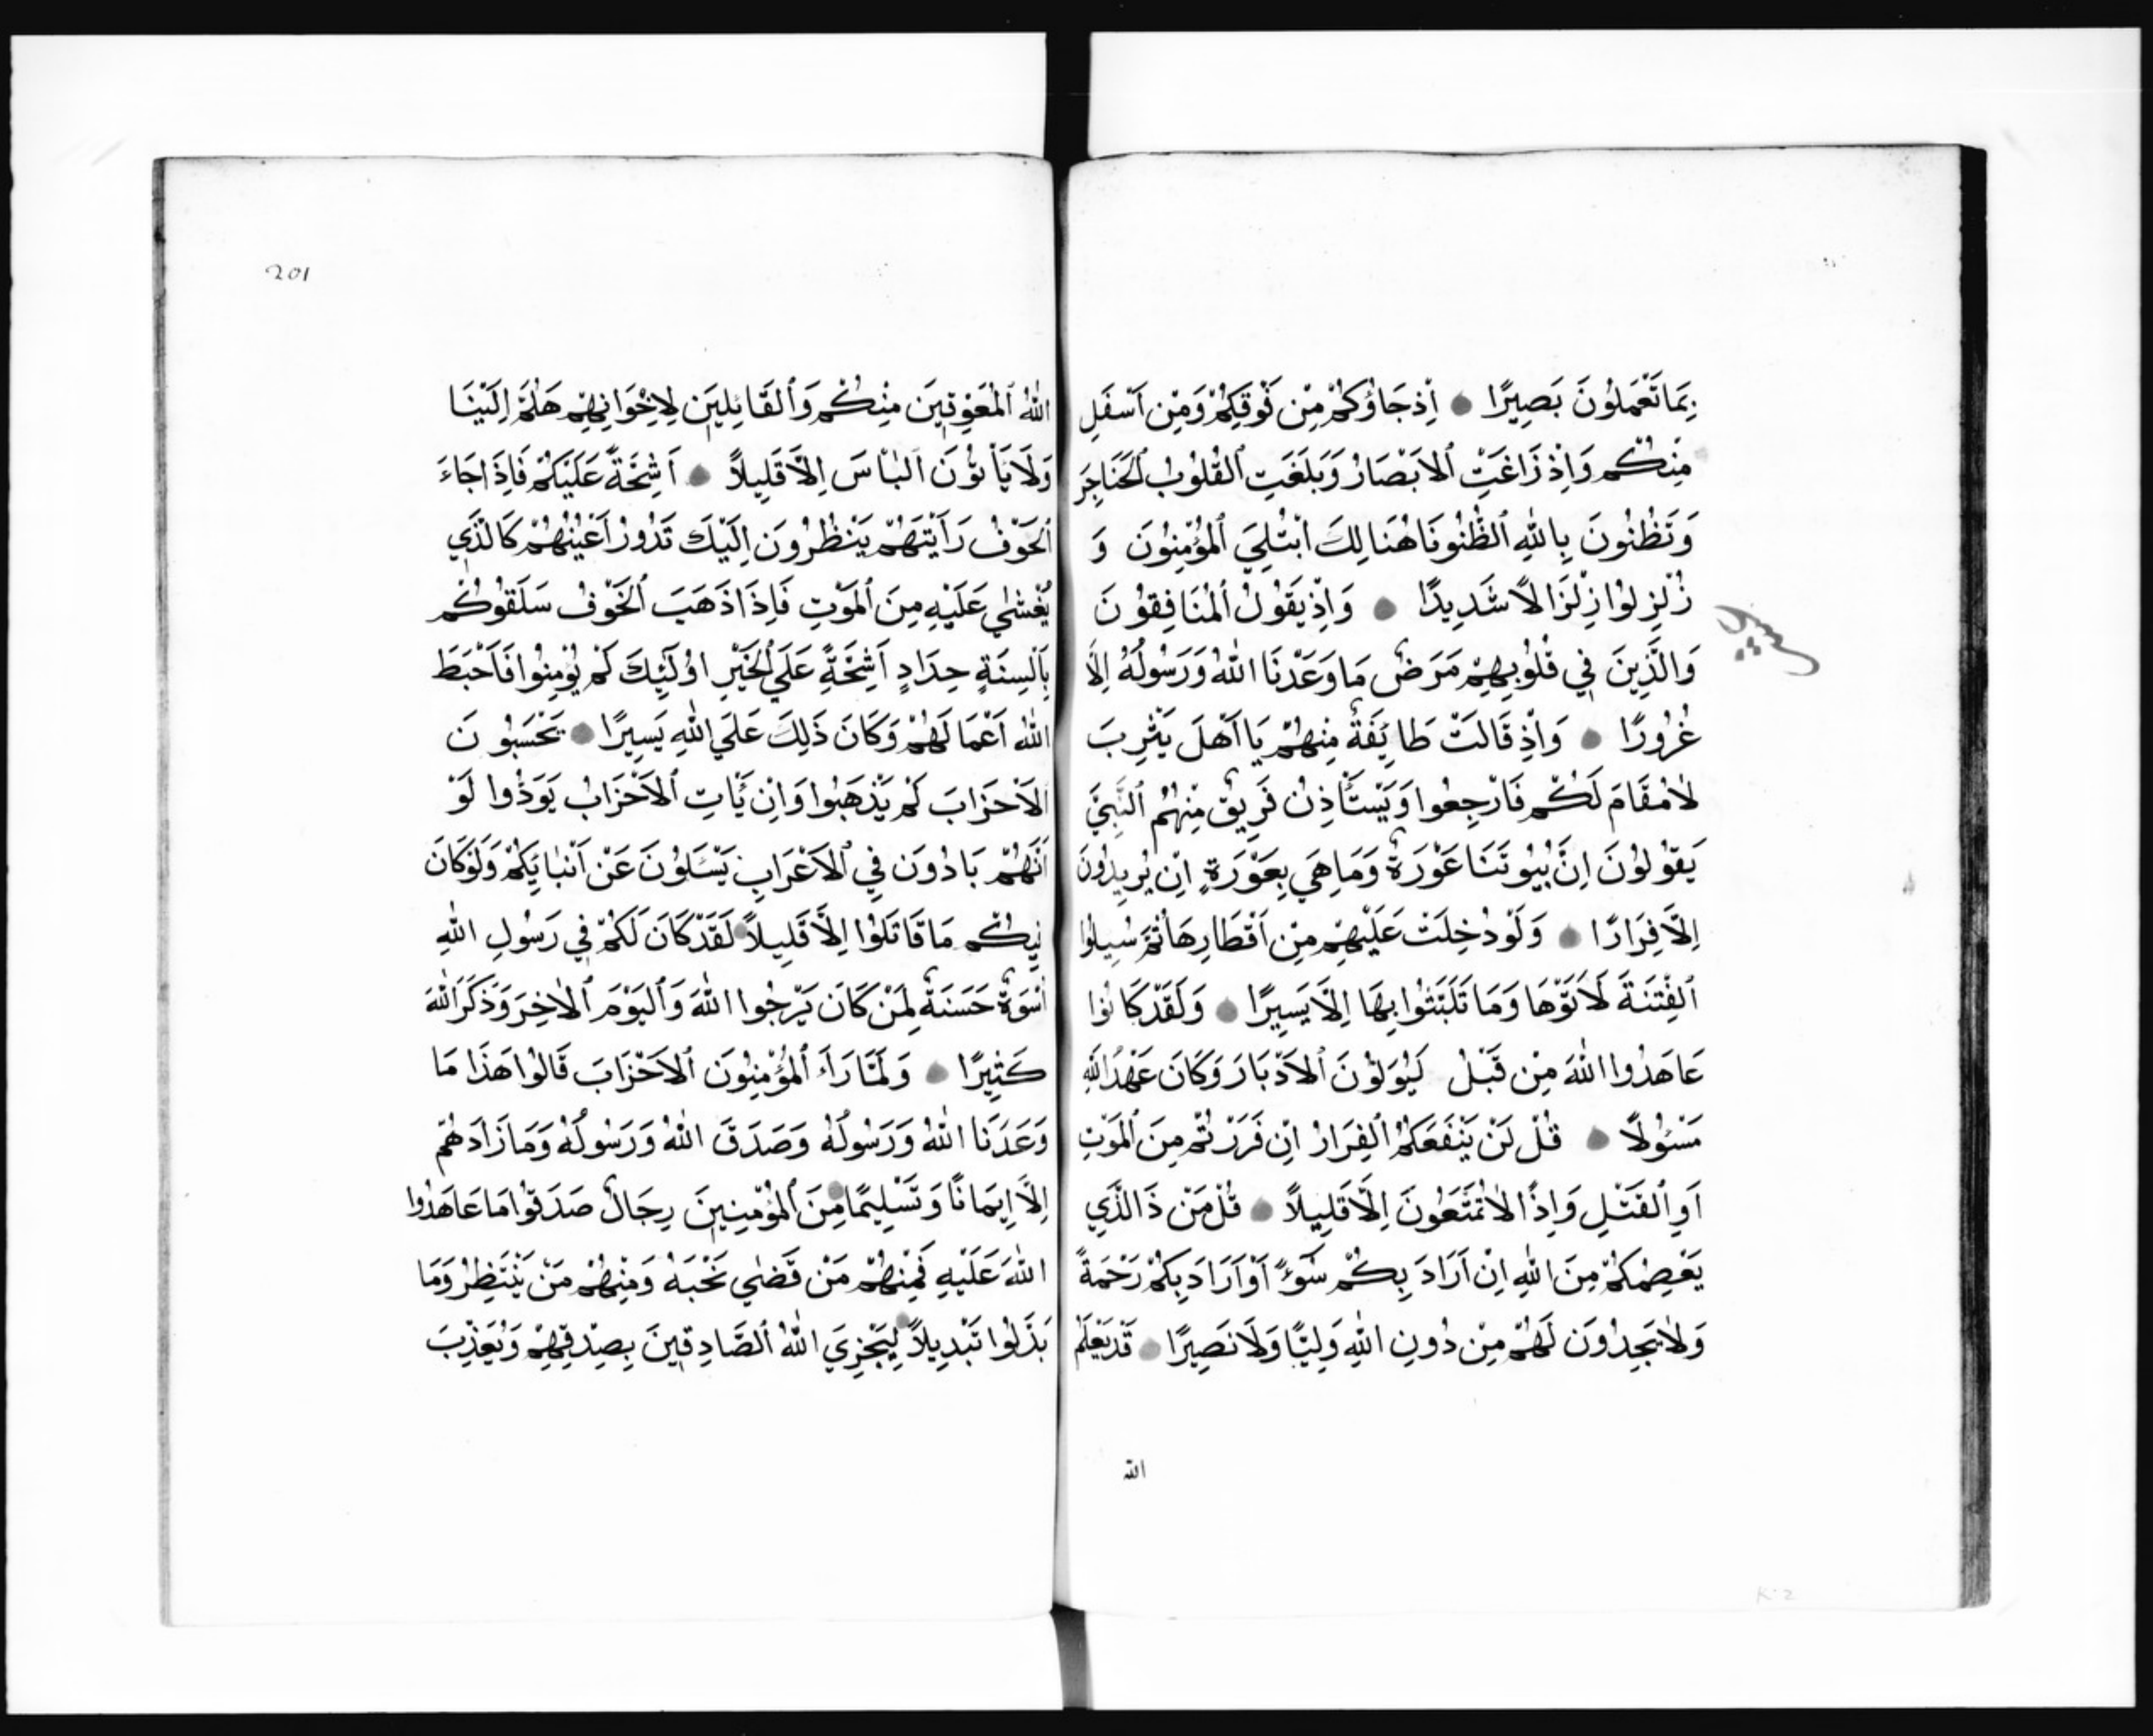 بِمَا تَعْمَلُونَ بَصِيرًا اِذْ جَاؤُكُمْ مِنْ فَوْقِكُمْ وَمِنْ اَسْفَلِ
مِنْكُمْ وَاِذْ زَاغَتِ الْاَبْصَارُ وَبَلَغَتِ الْقُلُوبُ الْحَنَاجِرَ
وَتَظُنُّونَ بِاللّٰهِ الظُّنُونَا هُنَالِكَ ابْتُلِيَ الْمُؤْمِنُونَ وَ
زُلْزِلُوا زِلْزَالًا شَدِيدًا وَاِذْ يَقُولُ الْمُنَافِقُونَ
وَالَّذِينَ فِي قُلُوبِهِمْ مَرَضٌ مَا وَعَدَنَا اللّٰهُ وَرَسُولُهُ اِلَّا
غُرُورًا وَاِذْ قَالَتْ طَائِفَةٌ مِنْهُمْ يَا اَهْلَ يَثْرِبَ
لَا مُقَامَ لَكُمْ فَارْجِعُوا وَيَسْتَأْذِنُ فَرِيقٌ مِنْهُمُ النَّبِيَّ
يَقُولُونَ اِنَّ بُيُوتَنَا عَوْرَةٌ وَمَا هِيَ بِعَوْرَةٍ اِنْ يُرِيدُونَ
اِلَّا فِرَارًا وَلَوْ دُخِلَتْ عَلَيْهِمْ مِنْ اَقْطَارِهَا ثُمَّ سُيِلُوا
الْفِتْنَةَ لَاَتَوْهَا وَمَا تَلَبَّثُوا بِهَا اِلَّا يَسِيرًا وَلَقَدْ كَانُوا
عَاهَدُوا اللّٰهَ مِنْ قَبْلُ لَيُوَلُّونَ الْاَدْبَارَ وَكَانَ عَهْدُ اللّٰهِ
مَسْئُولًا قُلْ لَنْ يَنْفَعَكُمُ الْفِرَارُ اِنْ فَرَرْتُمْ مِنَ الْمَوْتِ
اَوِ الْقَتْلِ وَاِذًا لَا تُمَتَّعُونَ اِلَّا قَلِيلًا قُلْ مَنْ ذَا الَّذِي
يَعْصِمُكُمْ مِنَ اللّٰهِ اِنْ اَرَادَ بِكُمْ سُوءً اَوْ اَرَادَ بِكُمْ رَحْمَةً
وَلَا يَجِدُونَ لَهُمْ مِنْ دُونِ اللّٰهِ وَلِيًّا وَلَا نَصِيرًا قَدْ يَعْلَمُ
الله
201
اللّٰهُ الْمُعَوِّقِينَ مِنْكُمْ وَالْقَائِلِينَ لِاِخْوَانِهِمْ هَلُمَّ اِلَيْنَا
وَلَا يَأْتُونَ الْبَأْسَ اِلَّا قَلِيلًا اَشِحَّةً عَلَيْكُمْ فَاِذَا جَاءَ
الْخَوْفُ رَاَيْتَهُمْ يَنْظُرُونَ اِلَيْكَ تَدُورُ اَعْيُنُهُمْ كَالَّذِي
يُغْشٰي عَلَيْهِ مِنَ الْمَوْتِ فَاِذَا ذَهَبَ الْخَوْفُ سَلَقُوكُمْ
بِاَلْسِنَةٍ حِدَادٍ اَشِحَّةً عَلَي الْخَيْرِ اوُلَئِكَ لَمْ يُؤْمِنُوا فَاَحْبَطَ
اللّٰهُ اَعْمَالَهُمْ وَكَانَ ذَلِكَ عَلَي اللّٰهِ يَسِيرًا يَحْسَبُونَ
الْاَحْزَابَ لَمْ يَذْهَبُوا وَاِنْ يَأْتِ الْاَحْزَابُ يَوَدُّوا لَوْ
اَنَّهُمْ بَادُونَ فِي الْاَعْرَابِ يَسْئَلُونَ عَنْ اَنْبَائِكُمْ وَلَوْ كَانَ
فِيكُمْ مَا قَاتَلُوا اِلَّا قَلِيلًا لَقَدْ كَانَ لَكُمْ فِي رَسُولِ اللّٰهِ
اُسْوَةٌ حَسَنَةٌ لِمَنْ كَانَ يَرْجُوا اللّٰهَ وَالْيَوْمَ الْاٰخِرَ وَذَكَرَ اللّٰهَ
كَثِيرًا وَلَمَّا رَاَءَ الْمُؤْمِنُونَ الْاَحْزَابَ قَالُوا هَذَا مَا
وَعَدَنَا اللّٰهُ وَرَسُولُهُ وَصَدَقَ اللّٰهُ وَرَسُولُهُ وَمَا زَادَهُمْ
اِلَّا اِيمَانًا وَتَسْلِيمًا مِنَ الْمُؤْمِنِينَ رِجَالٌ صَدَقُوا مَا عَاهَدُوا
اللّٰهَ عَلَيْهِ فَمِنْهُمْ مَنْ قَضٰي نَحْبَهُ وَمِنْهُمْ مَنْ يَنْتَظِرُ وَمَا
بَدَّلُوا تَبْدِيلًا لِيَجْزِيَ اللّٰهُ الصَّادِقِينَ بِصِدْقِهِمْ وَيُعَذِّبَ